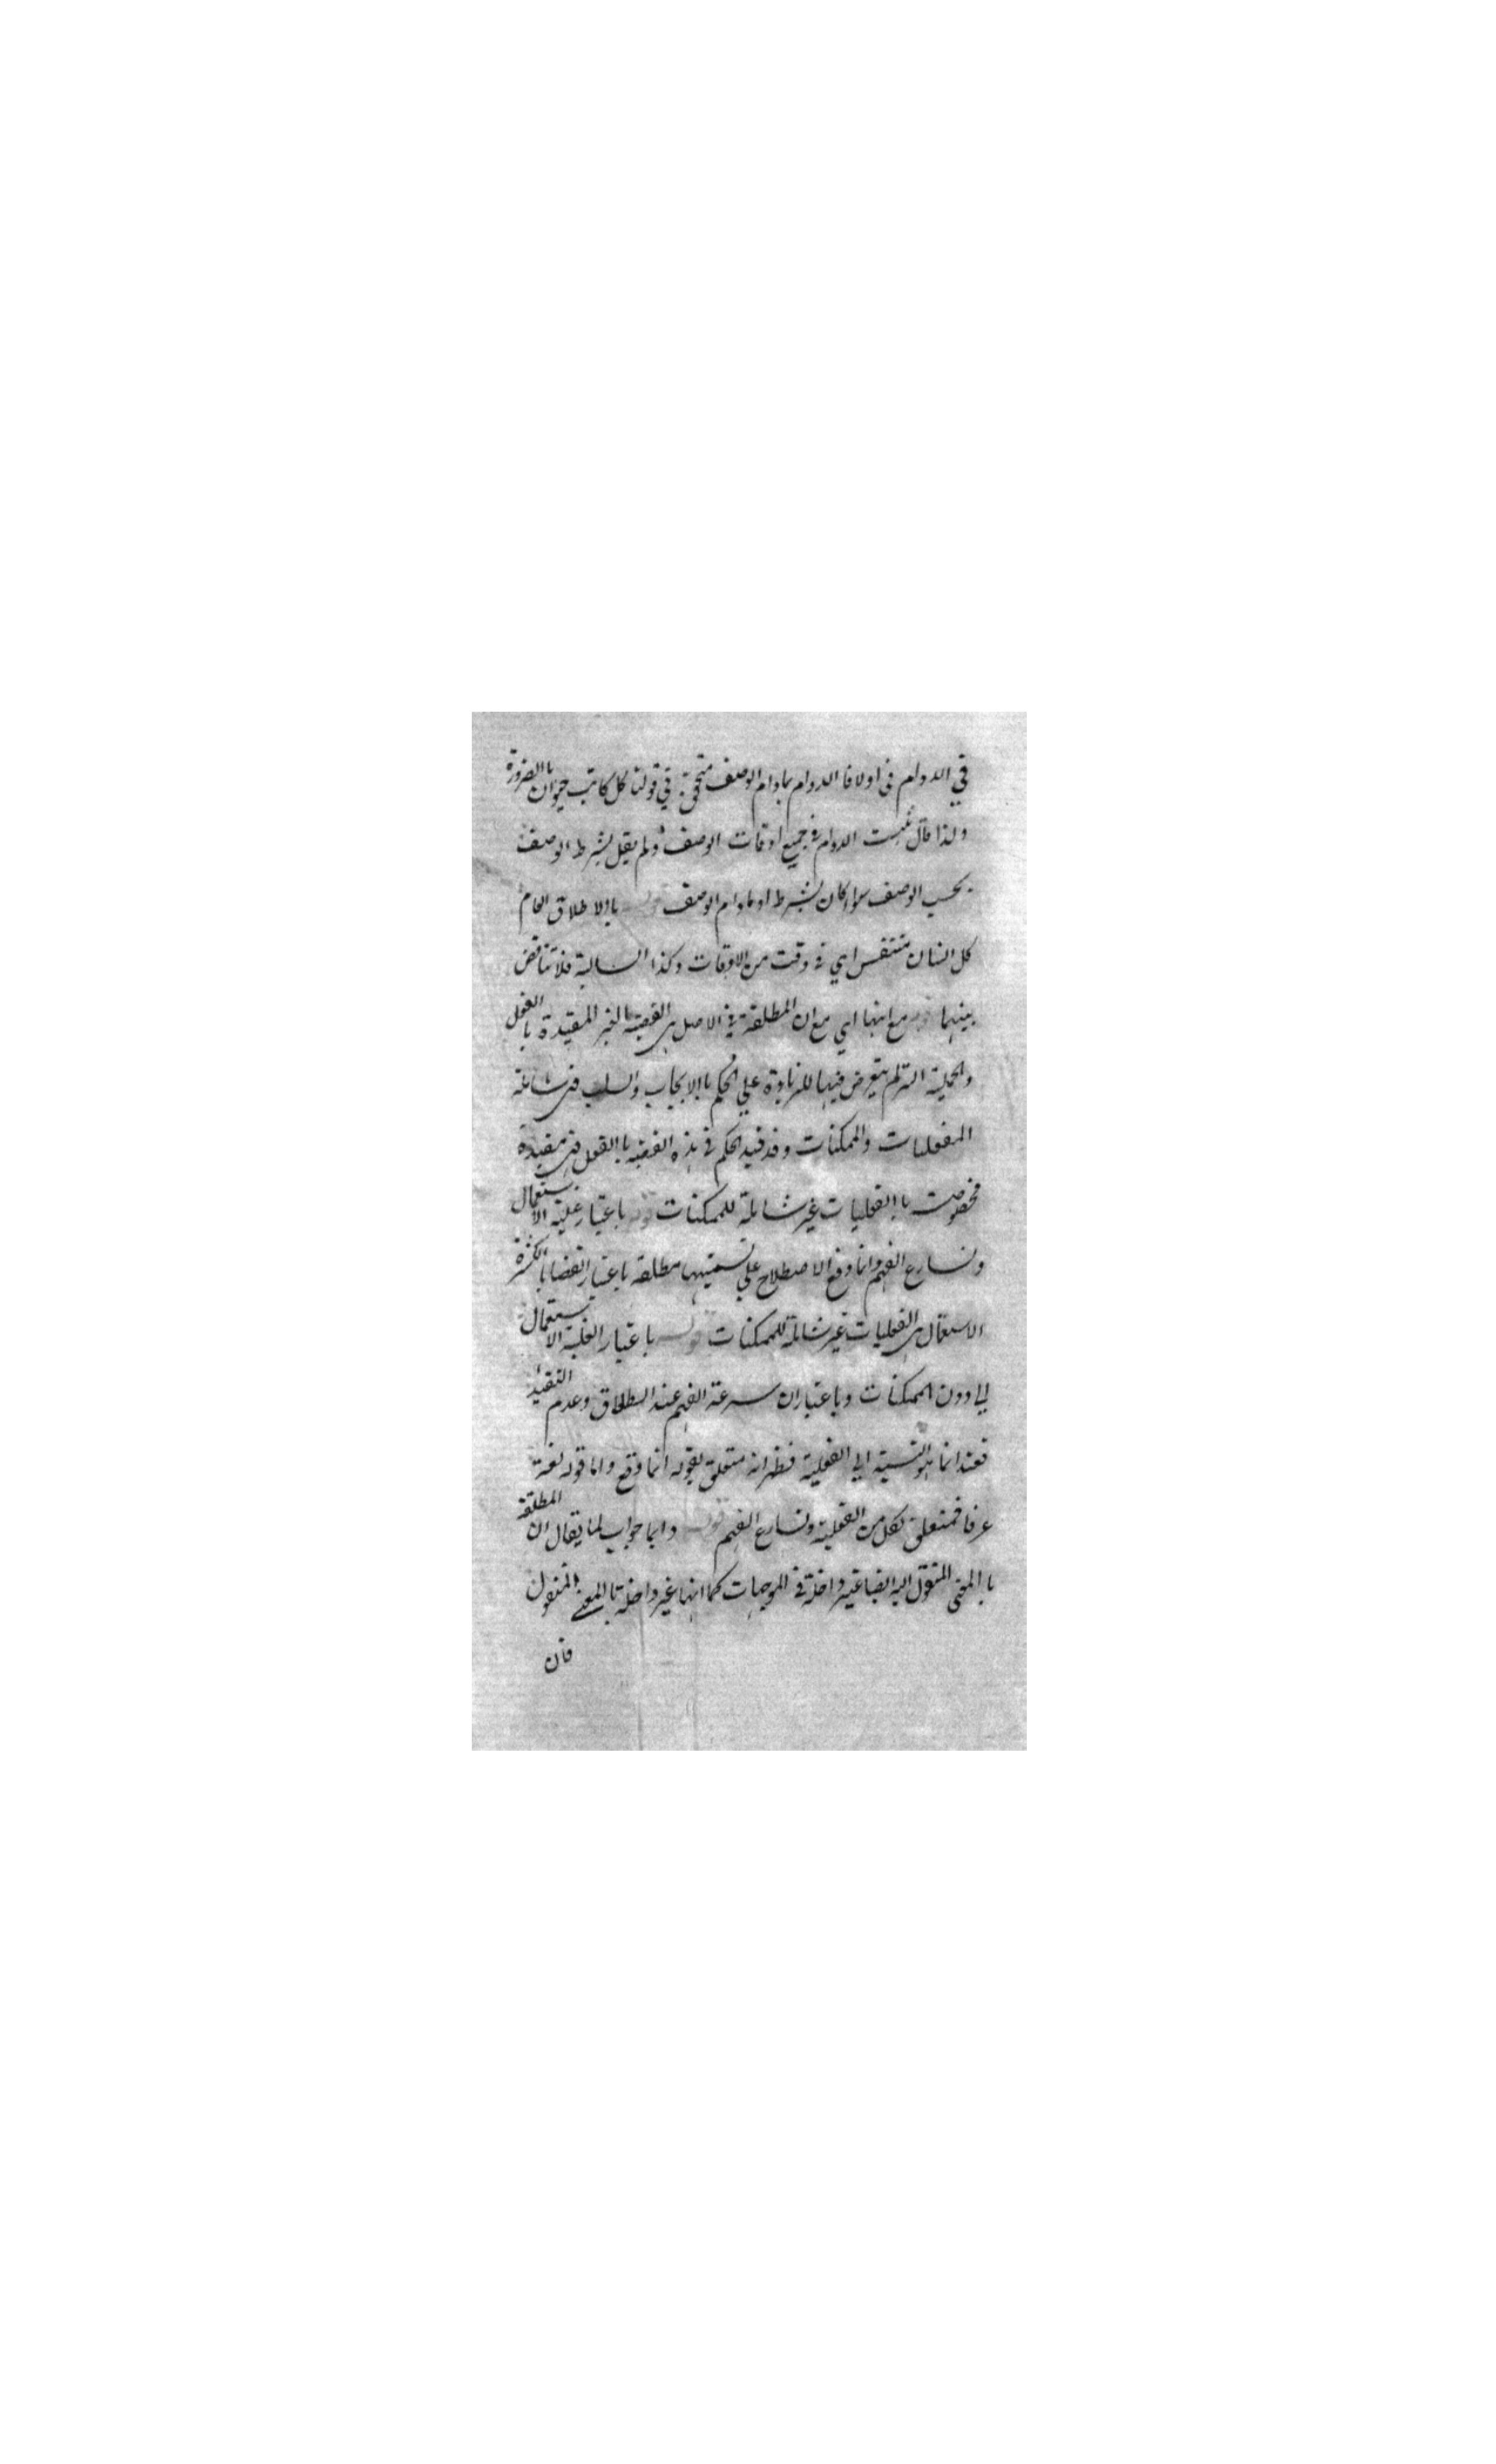 في الدوام في اولا فا الدوام مادام الوصف متحقق في قولنا كل كاتب حيوان باالضرورة
ولذا قال يثبت الدوام في جميع اوقات الوصف ولم يقل بشرط الوصف
بحسب الوصف سواء كان بشرط او مادام الوصف قوله باالاطلاق العام
كل انسان متنفس اي في وقت من الاوقات وكذا السالبة فلا تناقض
بينهما قوله مع انها اي مع ان المطلقة في الاصل هي القضية الغير المقيدة باالفعل
والحملية التي لم يتعرض فيها للزيادة علي الحكم باالايجاب والسلب فهي شاملة
الفعليات والممكنات وقد قيد الحكم في هذه القضية باالفعل فهي مقيدة
مخصوصة باالفعليات غير شاملة للممكنات قوله باعتبار غلبة الاستعمال
وتسارع الفهم وانما وقع الاصطلاح علي تسميتها مطلقة باعتبار القضايا الكثيرة
الاستعمال هي الفعليات غير شاملة للممكنات قوله باعتبار الغلبة الاستعمال
اي دون الممكنات وباعتبار ان سرعة الفهم عند الطلاق وعدم التقييد
فعند انما هو النسبة الي الفعلية فظهر انه متعلق بقوله انما وقع واما قوله لغة
عرفا فمتعلق بكل من الفعلية وتسارع الفهم قوله وانما جواب لما يقال ان المطلقة
باالمعني المنقول اليه ايضا غير داخلة في الموجهات كما انها غير داخلة باالمعني المنقول
فان